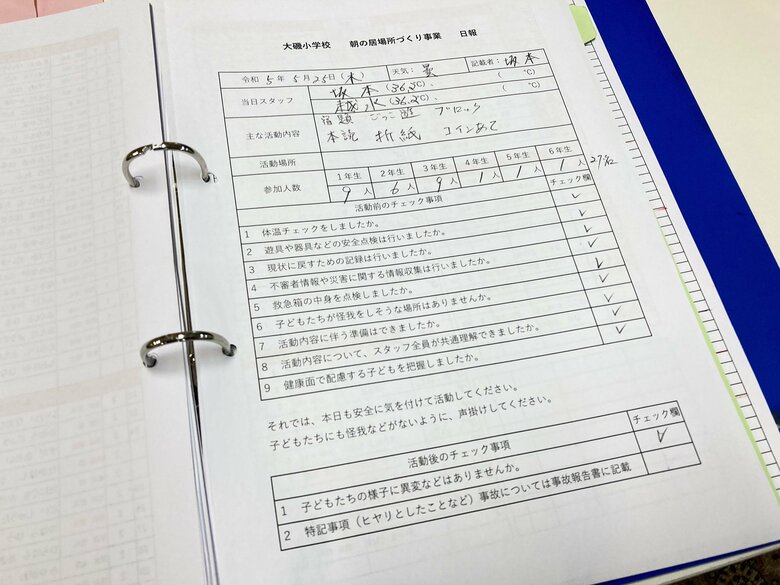 大磯小学校 朝の居場所づくり事業 日報
令和 5年 5月 25日(木) 天気: 曇 記載者: 坂本
当日スタッフ 坂本(36.3℃)、 ( ℃)
越水(36.2℃)、 ( ℃)
主な活動内容 宿題 ごっこ遊 ブロック
本読 折紙 コインあて
活動場所
参加人数 1年生 2年生 3年生 4年生 5年生 6年生
9人 6人 9人 1人 1人 1人 27名
活動前のチェック事項 チェック欄
1 体温チェックをしましたか。 ✓
2 遊具や器具などの安全点検は行いましたか。 ✓
3 現状に戻すための記録は行いましたか。 ✓
4 不審者情報や災害に関する情報収集は行いましたか。 ✓
5 救急箱の中身を点検しましたか。 ✓
6 子どもたちが怪我をしそうな場所はありませんか。 ✓
7 活動内容に伴う準備はできましたか。 ✓
8 活動内容について、スタッフ全員が共通理解できましたか。 ✓
9 健康面で配慮する子どもを把握しましたか。 ✓
それでは、本日も安全に気を付けて活動してください。
子どもたちにも怪我などがないように、声掛けしてください。
活動後のチェック事項 チェック欄
1 子どもたちの様子に異変などはありませんか。 ✓
2 特記事項(ヒヤリとしたことなど)事故については事故報告書に記載